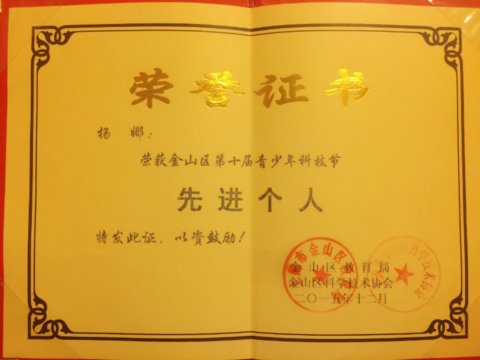 荣誉证书
杨 娜：
荣获金山区第十届青少年科技节
先进个人
特发此证，以资鼓励！
金山区教育局
金山区科学技术协会
二〇一五年十二月